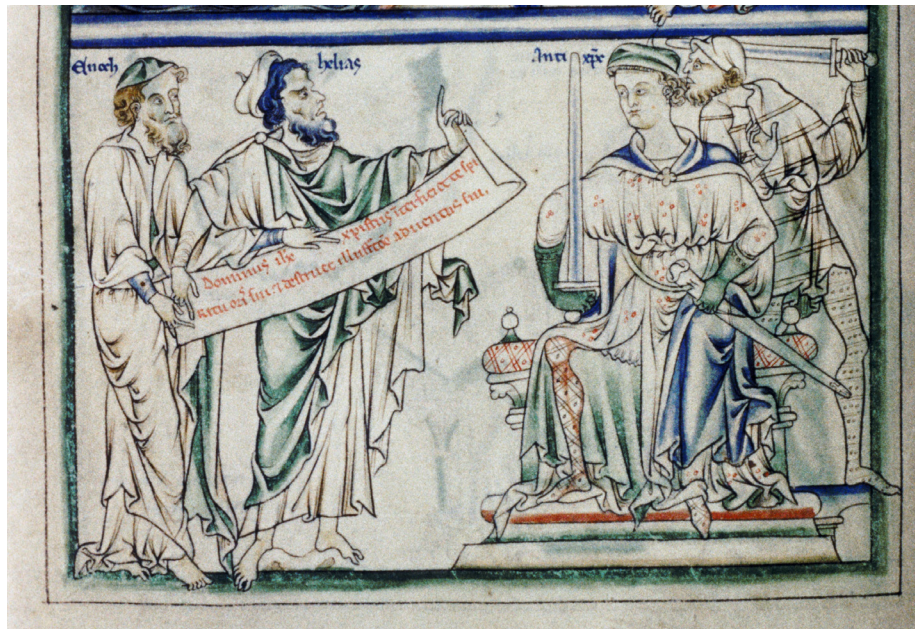 Enoch helias Anti xpc
Dominus ihc xpistus iterficiet te spi
ritu ori sui ⁊ destruet aduentus sui.